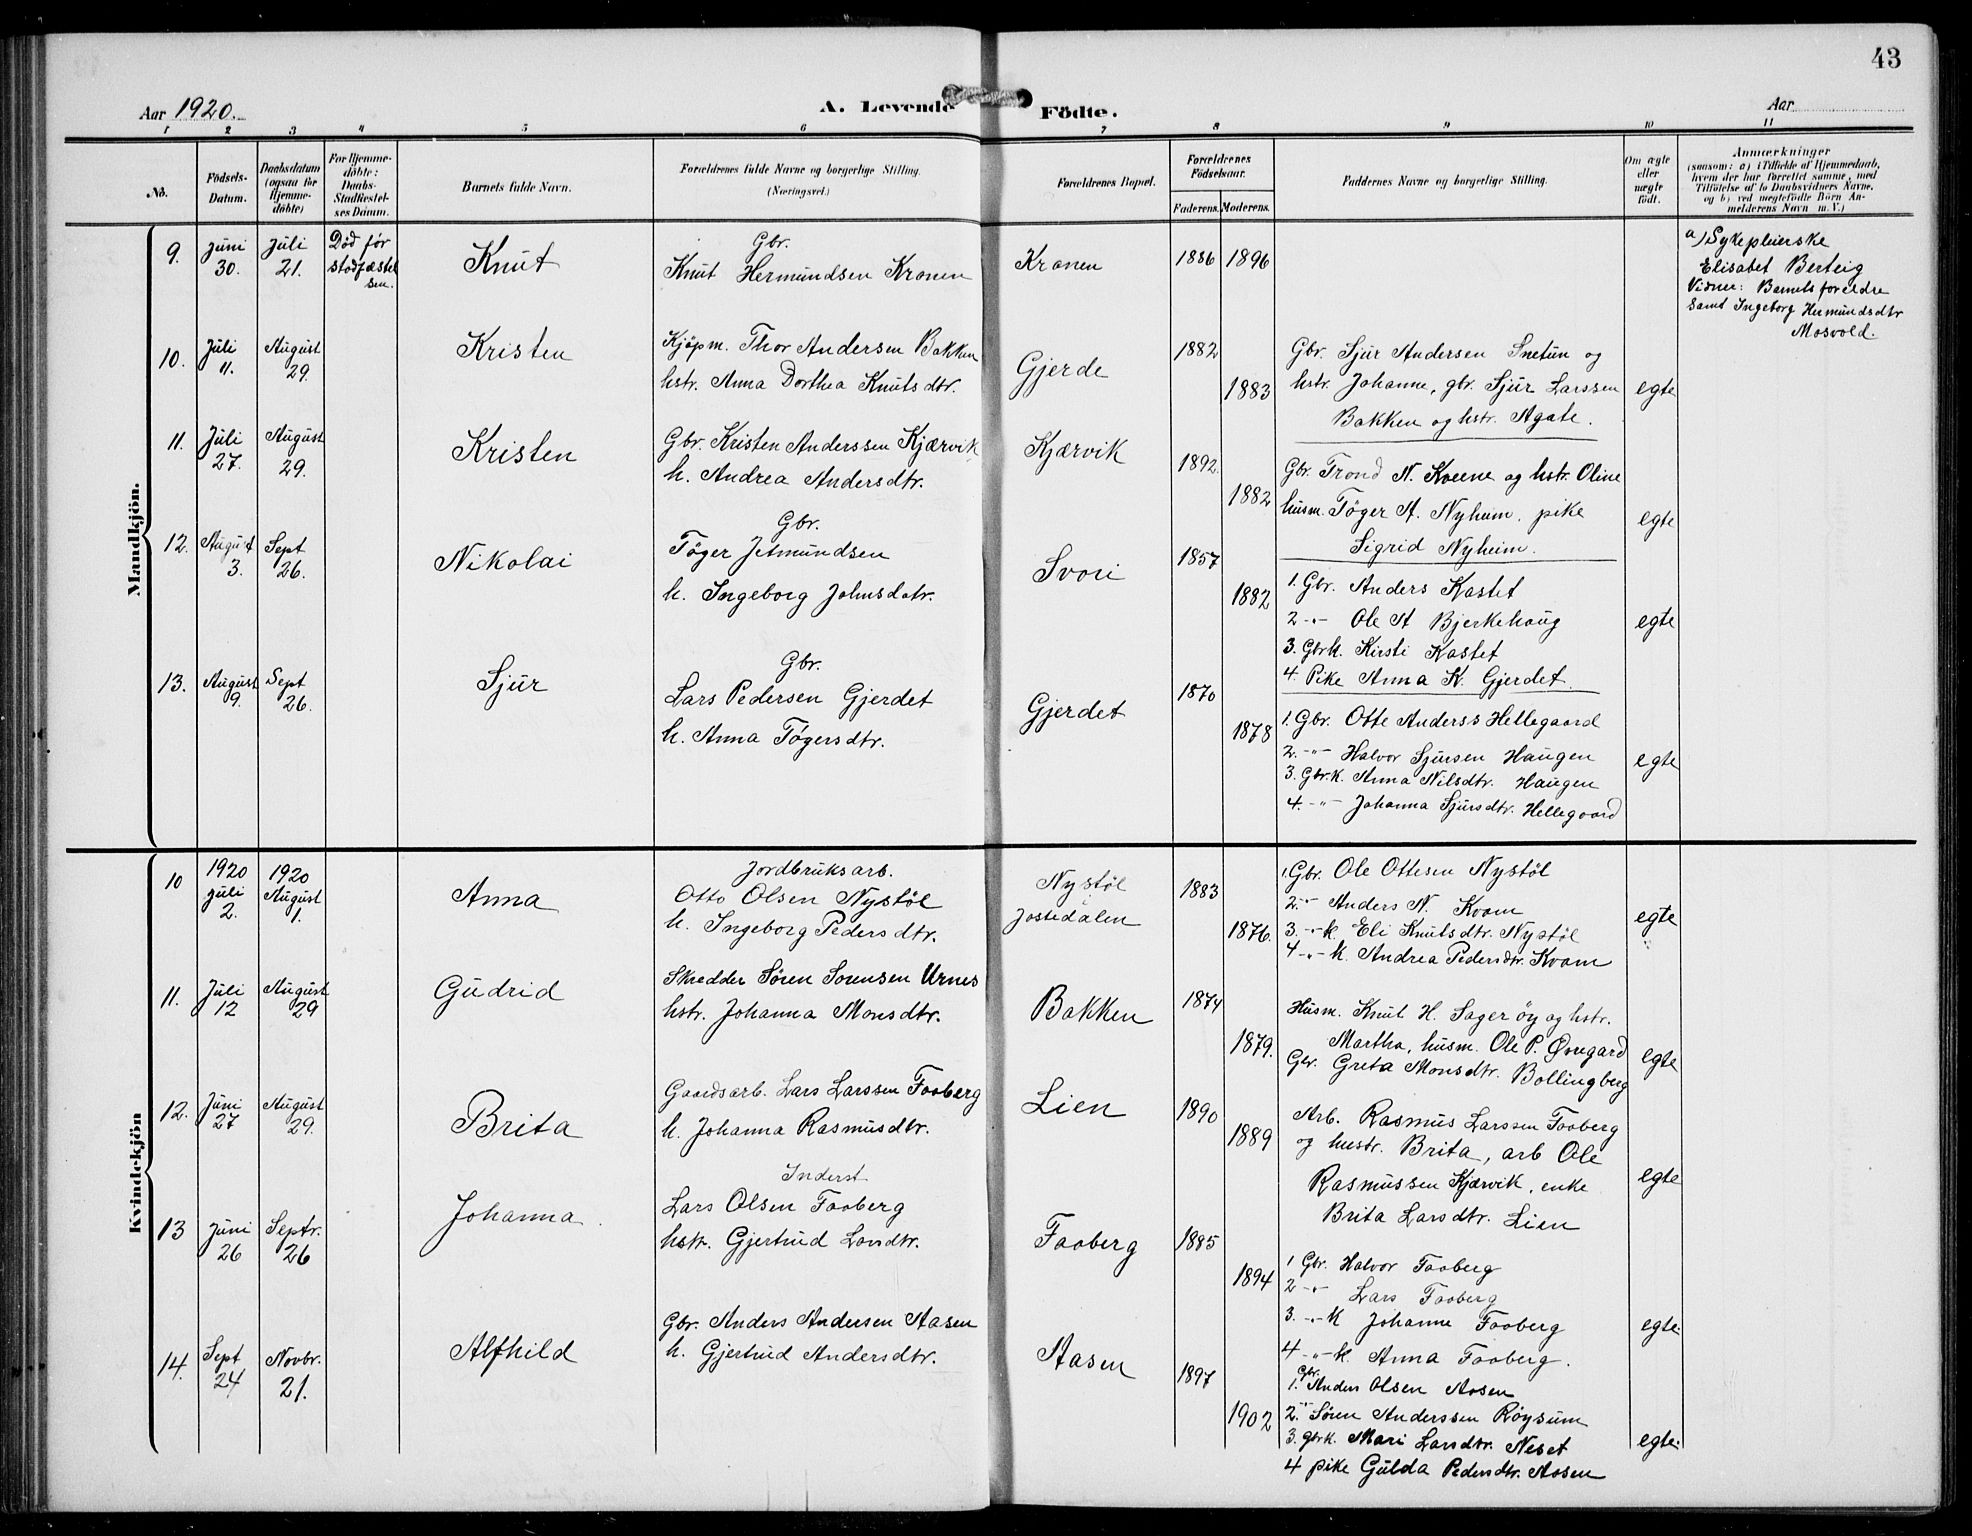 43
Aar 1920.
A. Levende Födte.
Aar
1 2 3 4 5 6 7 8 9 10 11
No.
Födsels-Datum.
Daabsdatum (ogsaa for Hjemme-döbte)
For Hjemme-döbte: Daabs-Stadfæstel-ses Datum.
Barnets fulde Navn.
Forældrenes fulde Navne og borgerlige Stilling. (Næringsvei.)
Forældrenes Bopæl.
Forældrenes Födselsaar.
Faderens. Moderens.
Faddernes Navne og borgerlige Stilling.
Om ægte eller uægte födt.
Anmærkninger
(saasom: a) i Tilfælde af Hjemmedaab,
hvem der har forrettet samme, med
Tilföielse af to Daabsvidners Navne,
og b) ved uægtefödte Börn An-
melderens Navn m. V.)
Mandkjön.
9. Juni 30. Juli 21. Död før stadfæstel sen. Knut
Gbr.
Knut Hermundsen Kronen
Kronen 1886 1896
a) Sykepleierske
Elisabet Berteig
Vidner: Barnets foreldre
samt Ingeborg Hermundsdtr
Mosvold.
10. Juli 11. August 29. Kristen
Kjøpm. Thor Andersen Bakken
hstr. Anna Dorthea Knutsdtr.
Gjerde 1882 1883
Gbr. Sjur Andersen Snetun og
hstr. Johanne, gbr. Sjur Larssen
Bakken og hstr. Agate.
egte
11. Juli 27. August 29. Kristen
Gbr. Kristen Anderssen Kjærvik
h. Andrea Andersdtr.
Kjærvik 1892. 1882
Gbr. Trond N. Kveene og hstr. Oline
husm. Tøger A. Nyheim. pike
Sigrid Nyheim.
egte
12. August 3. Sept 26. Nikolai
Gbr.
Tøger Jetmundsen
h. Ingeborg Johnsdatr.
Svori 1857 1882
1. Gbr. Anders Kastet
2 -"- Ole A Bjerkehaug
3. Gbrk. Kirsti Kastet
4. Pike Anna K. Gjerdet.
egte
13. August 9. Sept 26. Sjur
Gbr.
Lars Pedersen Gjerdet
h. Anna Tøgersdtr.
Gjerdet 1870 1878
1. Gbr. Otte Anderss Hellegaard
2. -"- Halvor Sjursen Haugen
3. Gbr.k. Anna Nilsdtr. Haugen
4. -"- Johanna Sjursdtr. Hellegaard
egte
Kvindekjön
10 1920 Juli 2. 1920 August 1. Anna
Jordbruksarb.
Otto Olsen Nystøl
h. Ingeborg Pedersdtr.
Nystøl
Jostedalen 1883 1876.
1. Gbr. Ole Ottesen Nystøl
2. -"- Anders N. Kvam
3. -"- k. Eli Knutsdtr. Nystøl
4 -"- k. Andrea Pedersdtr. Kvam
egte
11. Juli 12 August 29 Gudrid
Skredder Søren Sorensen Urnes
hstr. Johanna Monsdtr.
Bakken 1874 1879.
Husm. Knut H. Sagerøy og hstr.
Martha, husm. Ole P. Øvregard
Gbr. Greta Monsdtr. Bollingberg
egte
12. Juni 27 August 29. Brita
Gaardsarb. Lars Larssen Faaberg
h. Johanna Rasmusdtr.
Lien 1890 1889
Arb. Rasmus Larssen Faaberg
og hustr. Brita, arb Ole
Rasmussen Kjærvik, enke
Brita Larsdtr. Lien
egte
13 Juni 26 Septr. 26 Johanna
Inderst
Lars Olsen Faaberg
hstr. Gjertrud Larsdtr.
Faaberg 1885 1894
1 Gbr. Halvor Faaberg
2 -"- Lars Faaberg
3. -"- k Johanne Faaberg
4 -"- k. Anna Faaberg.
egte.
14. Sept 24 Novbr. 21. Alfhild
Gbr. Anders Andersen Aasen
h. Gjertrud Andersdtr.
Aasen 1897 1902
1. Gbr. Anders Olsen Aasen
2. -"- Søren Anderssen Røysum
3. gbrk. Mari Larsdtr. Neset
4 pike Gulda Pedersdtr. Aasen
egte.